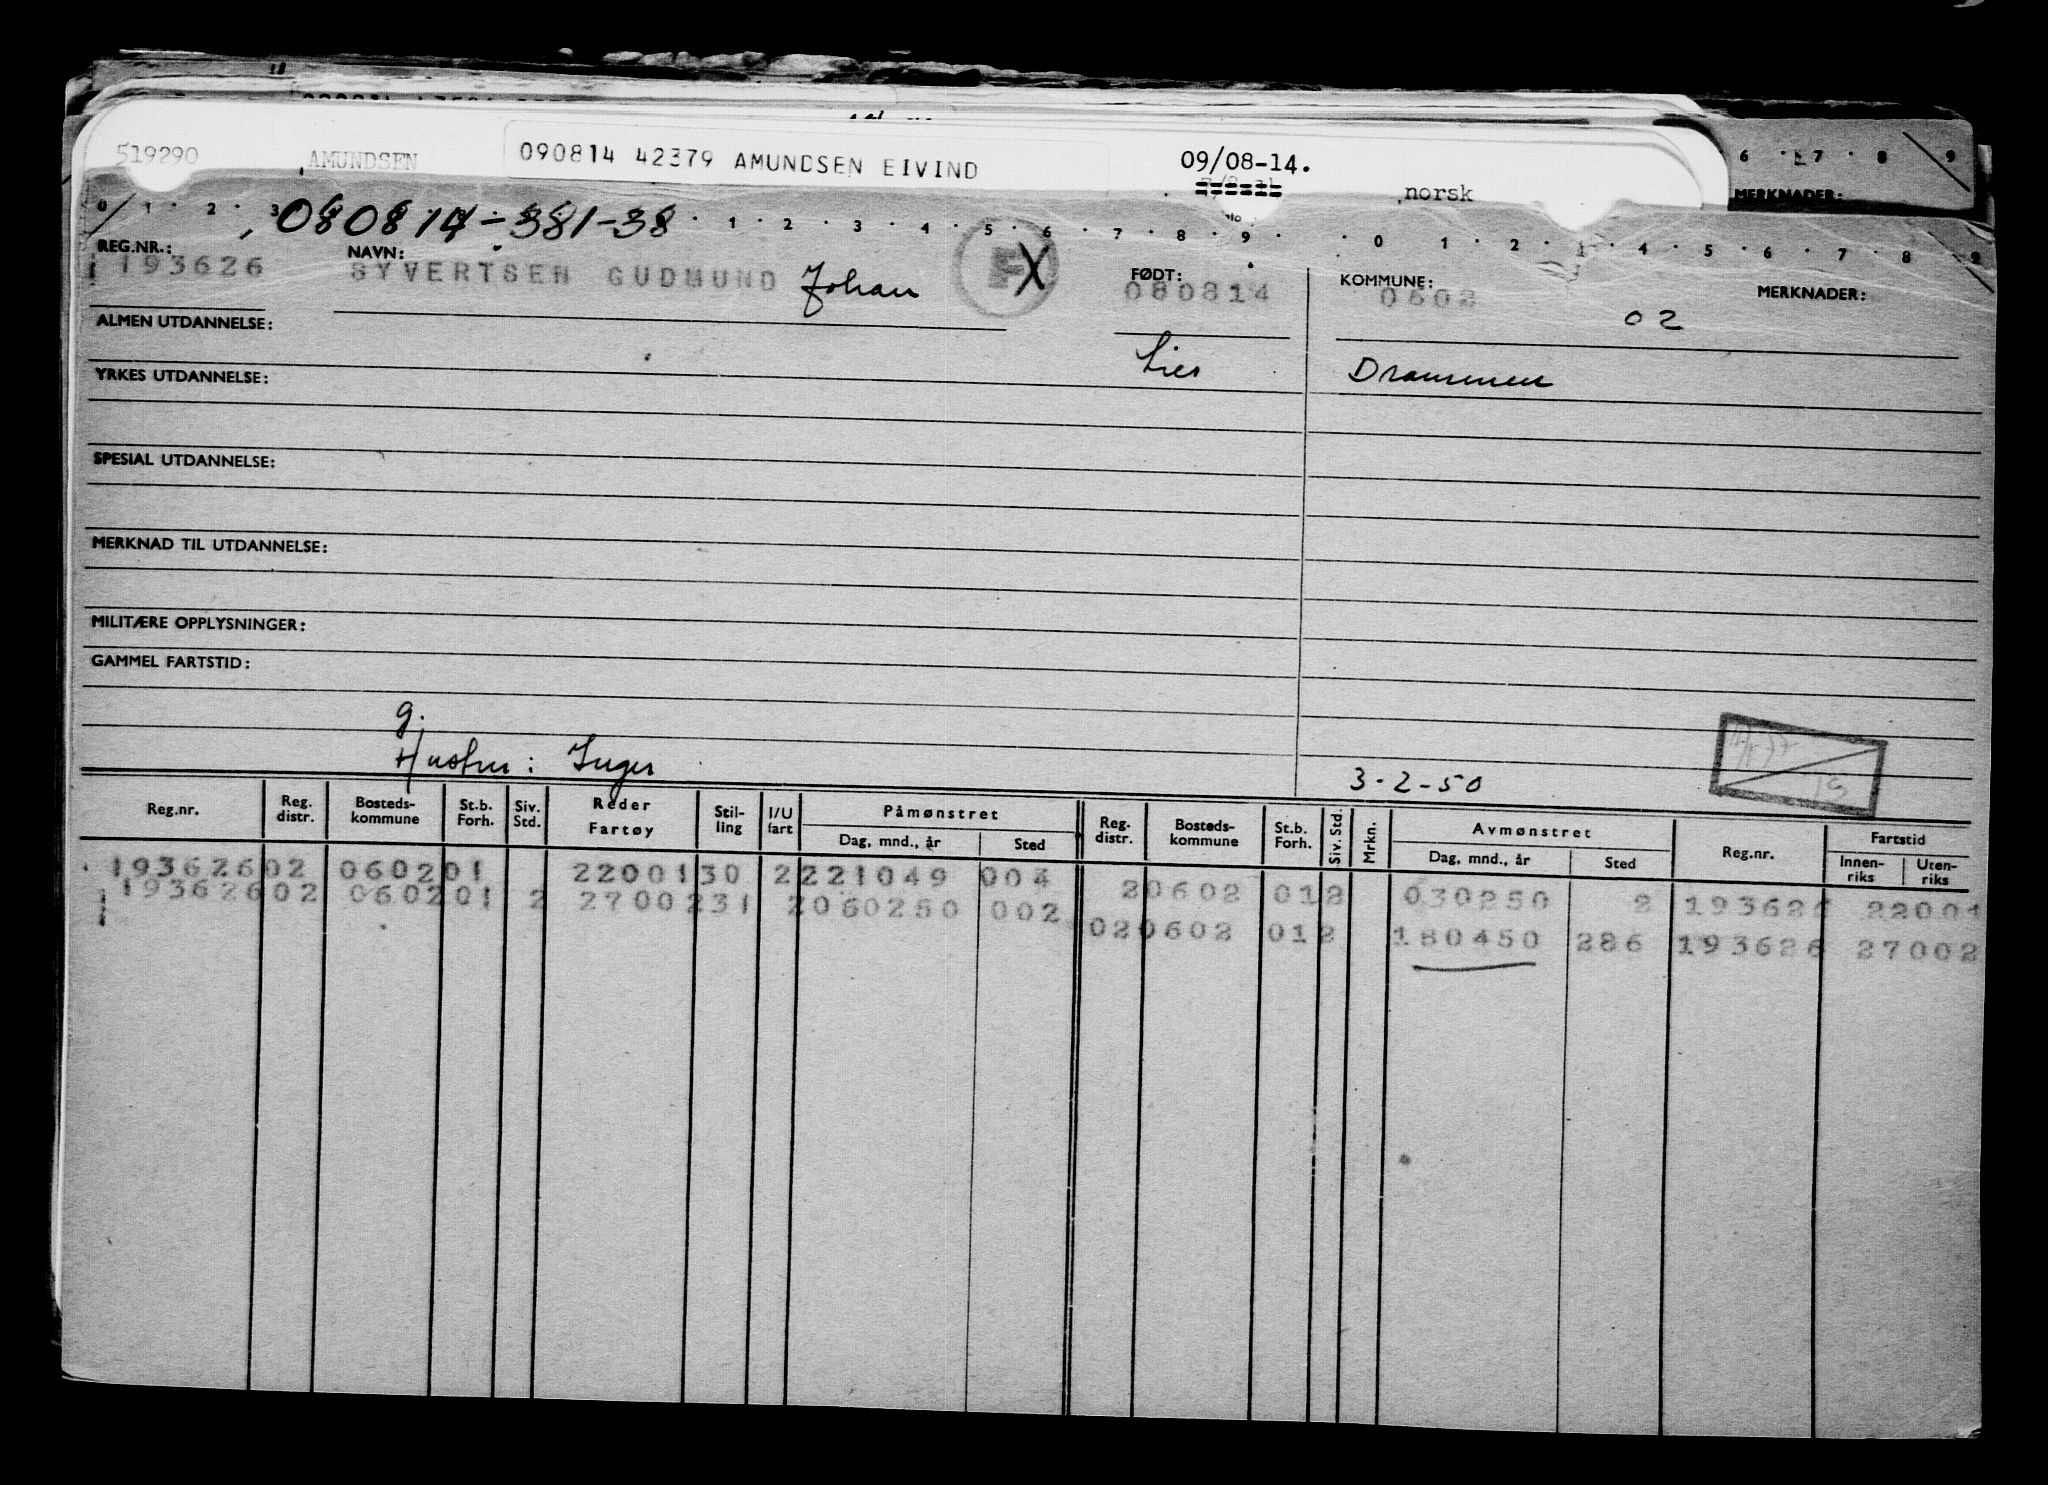 519290 AMUNDSEN 090814 42379 AMUNDSEN EIVIND 09/08-14. norsk
6 · 7 · 8 · 9
MERKNADER:
0 · 1 · 2 · 3 080814-381-38 · 1 · 2 · 3 · 4 · 5 · 6 · 7 · 8 · 9 · · 0 · 1 · 2 · 3 · 4 · 5 · 6 · 7 · 8 · 9
REG.NR.: NAVN: FØDT: KOMMUNE: MERKNADER:
193626 SYVERTSEN GUDMUND Johan F X 080814 0602 02
ALMEN UTDANNELSE:
Lier Drammen
YRKES UTDANNELSE:
SPESIAL UTDANNELSE:
MERKNAD TIL UTDANNELSE:
MILITÆRE OPPLYSNINGER:
GAMMEL FARTSTID:
g.
Hustru: Inger 3-2-50
Reg.nr. Reg. distr. Bosteds-kommune St.b. Forh. Siv. Std. Reder Fartøy Stil-ling I/U fart Påmønstret Dag, mnd., år Sted Reg. distr. Bosteds-kommune St.b. Forh. Siv. Std. Mrkn. Avmønstret Dag, mnd., år Sted Reg.nr. Fartstid Innen-riks Uten-riks
193626 02 0602 01 22001 30 2 221049 004 2 0602 01 2 030250 2 193626 22001
193626 02 0602 01 2 27002 31 2 060250 002 02 0602 01 2 180450 286 193626 27002